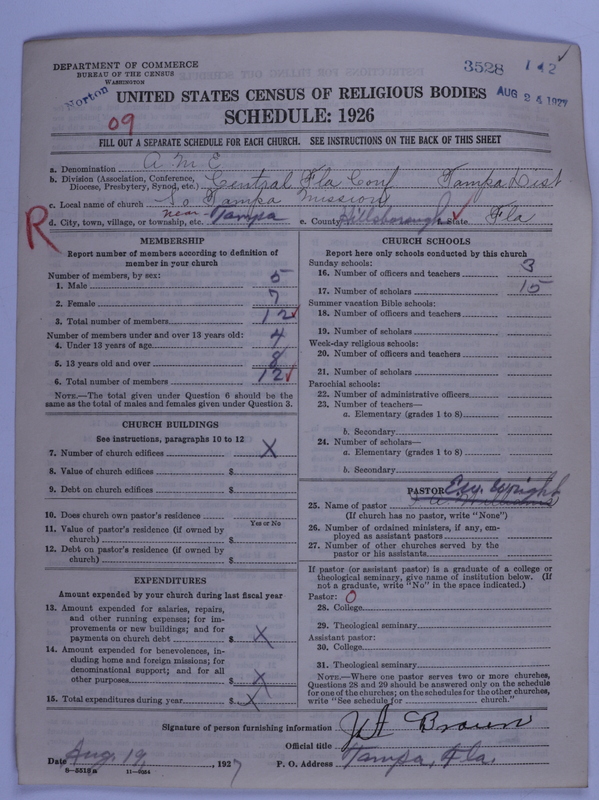 DEPARTMENT OF COMMERCE
BUREAU OF THE CENSUS
WASHINGTON
3528 142
Norton
UNITED STATES CENSUS OF RELIGIOUS BODIES
AUG 24 1927
SCHEDULE: 1926
09
FILL OUT A SEPARATE SCHEDULE FOR EACH CHURCH. SEE INSTRUCTIONS ON THE BACK OF THIS SHEET
a. Denomination A M E
b. Division (Association, Conference, Diocese, Presbytery, Synod, etc.) Central Fla Conf Tampa Dist
c. Local name of church So Tampa Mission
R
d. City, town, village, or township, etc. near Tampa e. County Hillsborough State Fla
MEMBERSHIP
Report number of members according to definition of
member in your church
Number of members, by sex:
1. Male 5
2. Female 7
3. Total number of members 12
Number of members under and over 13 years old:
4. Under 13 years of age 4
5. 13 years old and over 8
6. Total number of members 12
NOTE.—The total given under Question 6 should be the
same as the total of males and females given under Question 3.
CHURCH BUILDINGS
See instructions, paragraphs 10 to 12
7. Number of church edifices X
8. Value of church edifices $
9. Debt on church edifices $
10. Does church own pastor's residence
Yes or No
11. Value of pastor's residence (if owned by
church) $
12. Debt on pastor's residence (if owned by
church) $
EXPENDITURES
Amount expended by your church during last fiscal year
13. Amount expended for salaries, repairs,
and other running expenses; for im-
provements or new buildings; and for
payments on church debt $ X
14. Amount expended for benevolences, in-
cluding home and foreign missions; for
denominational support; and for all
other purposes $ X
15. Total expenditures during year $ X
CHURCH SCHOOLS
Report here only schools conducted by this church
Sunday schools:
16. Number of officers and teachers 3
17. Number of scholars 15
Summer vacation Bible schools:
18. Number of officers and teachers
19. Number of scholars
Week-day religious schools:
20. Number of officers and teachers
21. Number of scholars
Parochial schools:
22. Number of administrative officers
23. Number of teachers—
a. Elementary (grades 1 to 8)
b. Secondary
24. Number of scholars—
a. Elementary (grades 1 to 8)
b. Secondary
PASTOR E.W. Wright
25. Name of pastor
(If church has no pastor, write "None")
26. Number of ordained ministers, if any, em-
ployed as assistant pastors
27. Number of other churches served by the
pastor or his assistants
If pastor (or assistant pastor) is a graduate of a college or
theological seminary, give name of institution below. (If
not a graduate, write "No" in the space indicated.)
Pastor: O
28. College
29. Theological seminary
Assistant pastor:
30. College
31. Theological seminary
NOTE.—Where one pastor serves two or more churches,
Questions 28 and 29 should be answered only on the schedule
for one of the churches; on the schedules for the other churches,
write "See schedule for church."
Signature of person furnishing information Brown
Official title
Date Aug. 19, 1927 P. O. Address Tampa, Fla.
8—5519a 11—9024